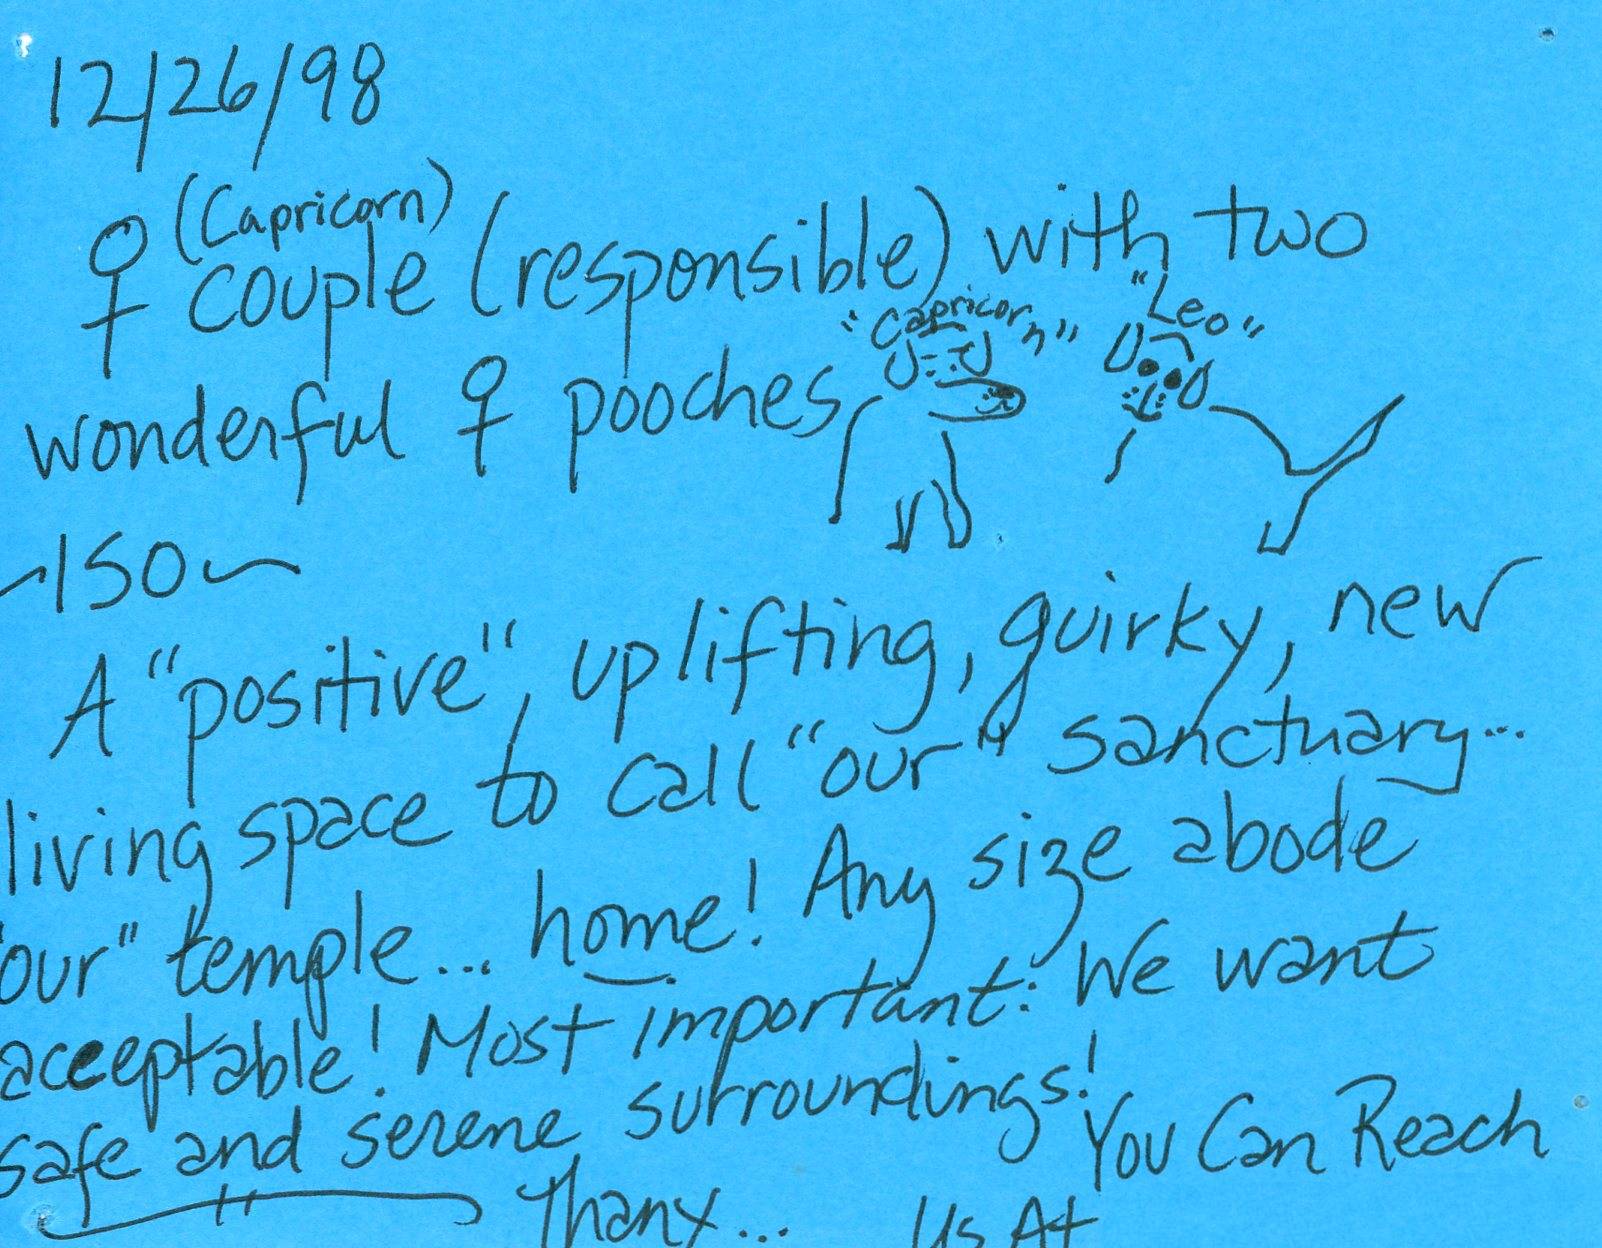 12/26/98
♀ (Capricorn) couple (responsible) with two
"Capricorn" "Leo"
wonderful ♀ pooches
~ISO~
A "positive", uplifting, quirky, new
living space to call "our" sanctuary...
"our" temple... home! Any size abode
acceptable! Most important: We want
safe and serene surroundings!
Thanx... You Can Reach
Us At